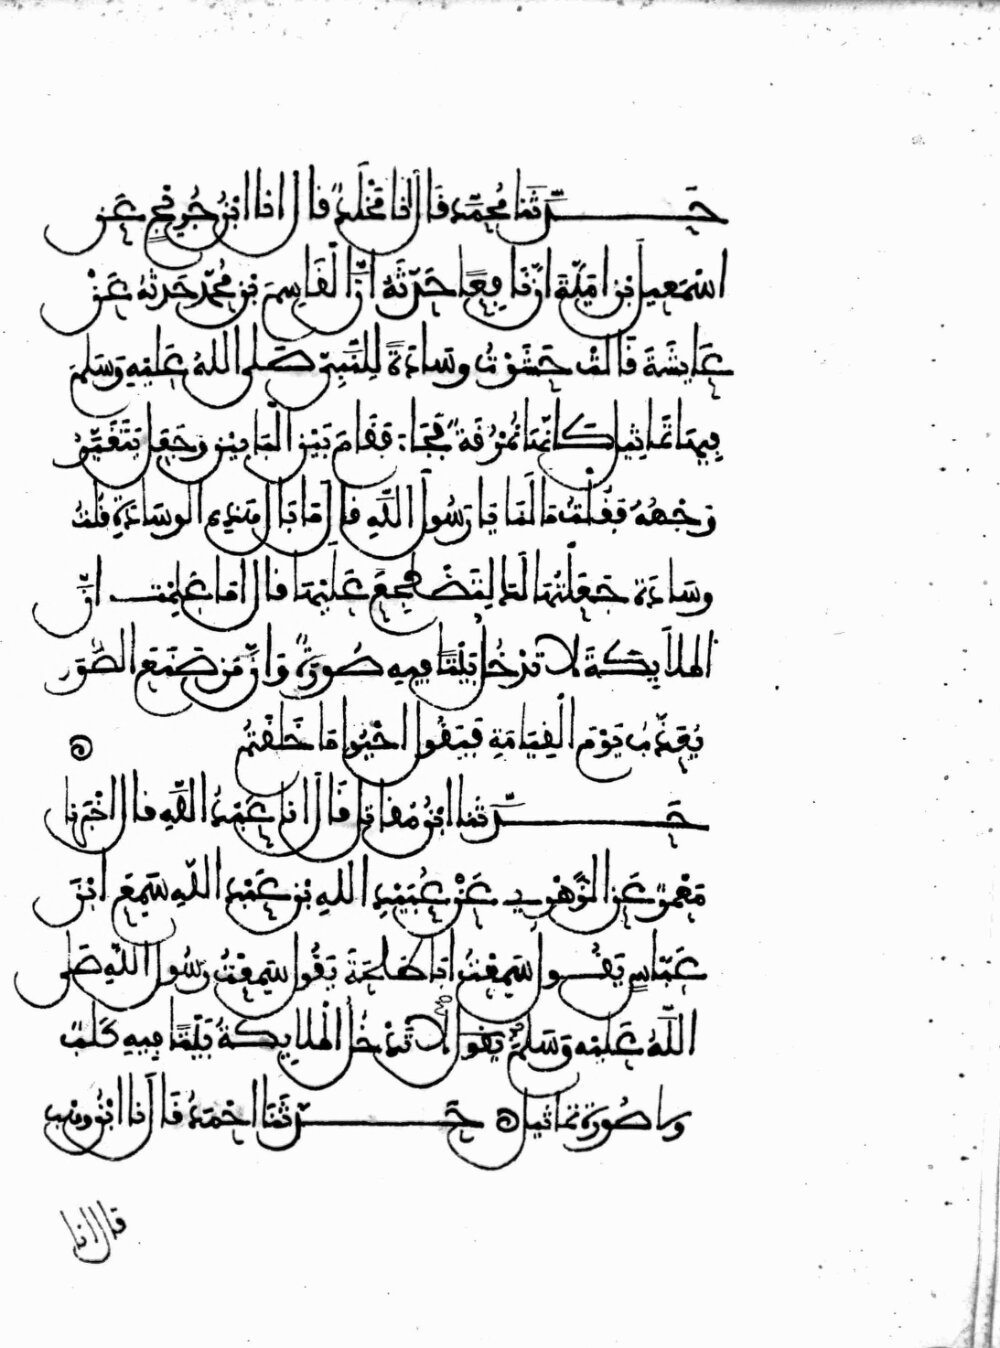 حَدَّثَنَا مُحَمَّد قَالَ انَا مَخْلَدٌ قال انا ابْنُ جُرَيْجٍ عَن
اسْمَعِيلَ بْنِ امَيَّةَ انَّ نَافِعًا حَدَّثَهُ انَّ الْقَاسِمَ بْنَ مُحَمَّد حَدَّثَهُ عَنْ
عَايِشَةَ قَالَتْ حَشَوْتُ وِسَادَةً لِلنَّبِيِّ صَلى اللهُ عَلَيْهِ وَسَلمَ
فِيهَا تَمَاثِيلُ كَأَنَّهَا نُمْرُقَةٌ فَجَا فَقَامَ بَيْنَ الْبَابَيْنِ وَجَعَلَ يَتَغَيَّرُ
وَجْهُهُ فَقُلْتُ مَا لَنَا يَا رَسُولَ اللَّهِ قَالَ مَا بَالُ هَذِهِ الْوِسَادَةِ قُلْتُ
وِسَادَة جَعَلْتُهَا لَكَ لِتَضْطَجِعَ عَلَيْهَا قَالَ امَا عَلِمْتِ انَّ
الملَايِكَةَ لَا تَدْخُلُ بَيْتًا فِيهِ صُورَةٌ وَانَّ مَن صَنَعَ الصُّوَرَ
يُعَذَّبُ يَوْمَ الْقِيَامَةِ فَيَقُولُ احْيُوا مَا خَلَقْتُمْ
حَدَّثَنَا ابْنُ مُقَاتِلٍ قَالَ انَا عَبْدُ اللَّهِ قال اخْبَرَنا
مَعْمَرٌ عَنِ الزُّهْرِي عَنْ عُبَيْدِ اللهِ بْنِ عَبْدِ اللَّهِ سَمِعَ ابْنَ
عَبَّاسٍ يَقُولُ سَمِعْتُ ابَا طَلْحَةَ يَقُولُ سَمِعْتُ رَسُولَ اللَّهِ صَلى
اللَّهُ عَلَيْهِ وَسَلمَ يَقُولُ لَا تَدْخُلُ الْمَلَايِكَةُ بَيْتًا فِيهِ كَلْبٌ
ولا صُورَة تَمَاثِيلَ حَدَّثَنَا احْمَدُ قَالَ نَا ابْنُ وهب
قال انا